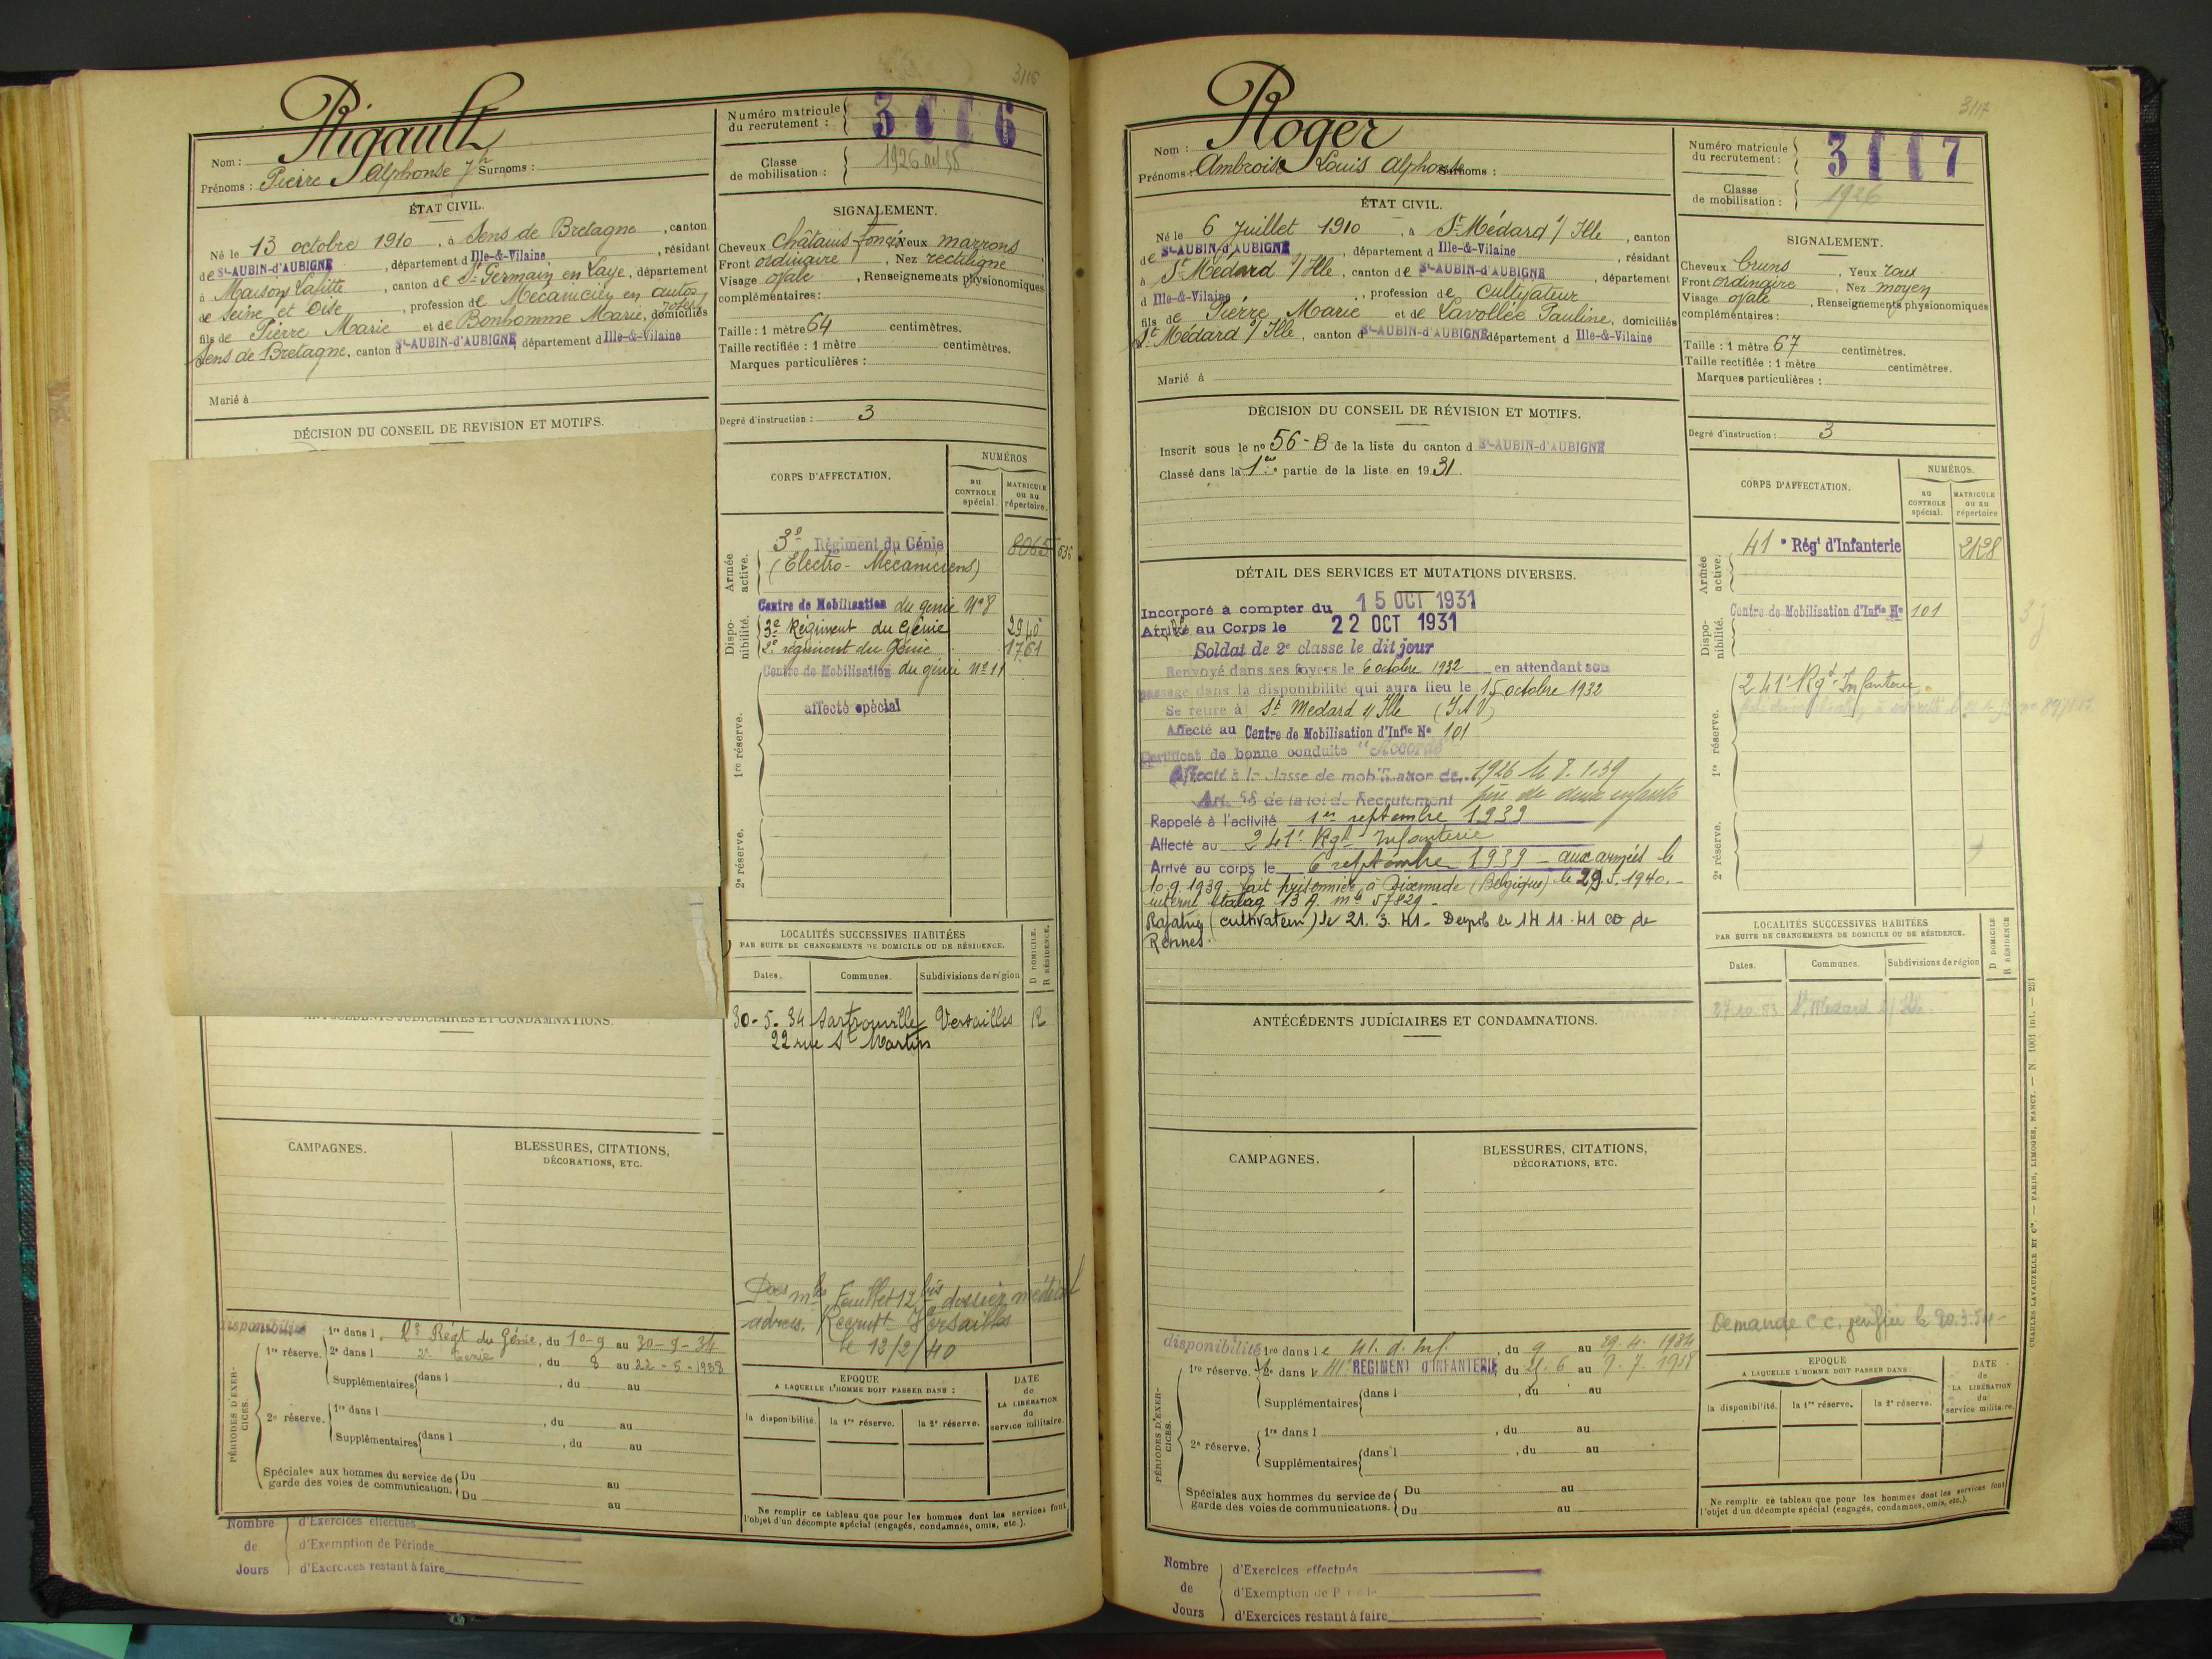 3116
Rigault
Nom :
Prénoms : Pierre Alphonse Jh Surnoms :
Numéro matricule du recrutement : 3116
Classe de mobilisation : 1926
ÉTAT CIVIL.
Né le 13 octobre 1910, à Sens de Bretagne, canton
de St-AUBIN-d'AUBIGNÉ, département d Ille-&-Vilaine, résidant
à Maison Lafitte, canton de St Germain en Laye, département
de Seine et Oise, profession de Mécanicien en autos
fils de Pierre Marie et de Bonhomme Marie, Joseph domiciliés
Sens de Bretagne, canton d St-AUBIN-d'AUBIGNÉ, département d Ille-&-Vilaine
Marié à
SIGNALEMENT.
Cheveux Châtains foncés Yeux marrons
Front ordinaire, Nez rectiligne
Visage ovale, Renseignements physionomiques
complémentaires :
Taille : 1 mètre 64 centimètres.
Taille rectifiée : 1 mètre centimètres.
Marques particulières :
Degré d'instruction : 3
DÉCISION DU CONSEIL DE REVISION ET MOTIFS.
CORPS D'AFFECTATION.
NUMÉROS
au CONTROLE spécial.
MATRICULE ou au répertoire.
Armée active.
3e Régiment du Génie 8065
(Electro-Mécaniciens)
Disponibilité.
Centre de Mobilisation du génie No 8
3e Régiment du Génie 2940
2e régiment du Génie 1761
Centre de Mobilisation du génie No 11
affecté spécial
1re réserve.
2e réserve.
LOCALITÉS SUCCESSIVES HABITÉES
PAR SUITE DE CHANGEMENTS DE DOMICILE OU DE RÉSIDENCE.
D DOMICILE.
R RÉSIDENCE.
Dates. Communes. Subdivisions de région
30-5-34 Sartrouville Versailles R
22 rue St Martin
ANTÉCÉDENTS JUDICIAIRES ET CONDAMNATIONS.
CAMPAGNES.
BLESSURES, CITATIONS,
DÉCORATIONS, ETC.
Feuillet 12 bis dossier médical
adres. Recrutt Versailles
le 12/2/40
PÉRIODES D'EXERCICES.
disponibilité 1re dans l 2e Régt du Génie, du 10-9 au 30-9-34
1re réserve. 2e dans l 2e Génie, du 8 au 22-5-1938
Supplémentaires dans l , du au
2e réserve. 1re dans l , du au
Supplémentaires dans l , du au
Spéciales aux hommes du service de garde des voies de communication. Du au
Du au
EPOQUE
A LAQUELLE L'HOMME DOIT PASSER DANS :
la disponibilité. la 1re réserve. la 2e réserve.
DATE de LA LIBÉRATION du service militaire.
Ne remplir ce tableau que pour les hommes dont les services font
l'objet d'un décompte spécial (engagés, condamnés, omis, etc.).
Nombre de Jours
d'Exercices effectués
d'Exemption de Période
d'Exercices restant à faire
3117
Roger
Nom :
Prénoms : Ambroise Louis Alphonse Surnoms :
Numéro matricule du recrutement : 3117
Classe de mobilisation : 1926
ÉTAT CIVIL.
Né le 6 Juillet 1910, à St-Médard s/ Ille, canton
de St-AUBIN-d'AUBIGNÉ, département d Ille-&-Vilaine, résidant
à St Médard s/ Ille, canton de St-AUBIN-d'AUBIGNÉ, département
d Ille-&-Vilaine, profession de cultivateur
fils de Pierre Marie et de Lavollée Pauline, domiciliés
à St Médard s/ Ille, canton d St-AUBIN-d'AUBIGNÉ département d Ille-&-Vilaine
Marié à
SIGNALEMENT.
Cheveux bruns, Yeux roux
Front ordinaire, Nez moyen
Visage ovale, Renseignements physionomiques
complémentaires :
Taille : 1 mètre 67 centimètres.
Taille rectifiée : 1 mètre centimètres.
Marques particulières :
Degré d'instruction : 3
DÉCISION DU CONSEIL DE RÉVISION ET MOTIFS.
Inscrit sous le no 56-B de la liste du canton d St-AUBIN-d'AUBIGNÉ
Classé dans la 1ere partie de la liste en 1931.
DÉTAIL DES SERVICES ET MUTATIONS DIVERSES.
Incorporé à compter du 15 OCT 1931
Arrivé au Corps le 22 OCT 1931
Soldat de 2e classe le dit jour
Renvoyé dans ses foyers le 6 octobre 1932 en attendant son
passage dans la disponibilité qui aura lieu le 15 octobre 1932
Se retire à St Médard s/ Ille (I&V)
Affecté au Centre de Mobilisation d'Infie No 101
Certificat de bonne conduite "Accordé"
Affecté à la classe de mobilisation de 1926 le 8.1.39
Art. 58 de la loi de Recrutement père de deux enfants
Rappelé à l'activité 1er septembre 1939
Affecté au 241e Rgt Infanterie
Arrivé au corps le 6 septembre 1939 - aux armées le
10.9.1939. fait prisonnier à Dixmude (Belgique) le 29.5.1940.-
interné Stalag 13 A. mle 57829 -
Rapatrié (cultivateur) le 21.3.41 - Démob le 14 11.41 CD de
Rennes.
CORPS D'AFFECTATION.
NUMÉROS.
au CONTROLE spécial.
MATRICULE ou au répertoire
Armée active.
41e Régt d'Infanterie 2128
Disponibilité.
Centre de Mobilisation d'Infie No 101
1re réserve.
241e Rgt Infanterie
2e réserve.
LOCALITÉS SUCCESSIVES HABITÉES
PAR SUITE DE CHANGEMENTS DE DOMICILE OU DE RÉSIDENCE.
D DOMICILE
R RÉSIDENCE
Dates. Communes. Subdivisions de région
27.10.53 St Médard s/ Ille.
ANTÉCÉDENTS JUDICIAIRES ET CONDAMNATIONS.
CAMPAGNES.
BLESSURES, CITATIONS,
DÉCORATIONS, ETC.
Demande C.C. le 20.3.54
PÉRIODES D'EXERCICES.
disponibilité 1re dans le 41. d. Inf., du 9 au 29.4.1934
1re réserve. 2e dans l 41e REGIMENT D'INFANTERIE, du 21.6 au 9.7.1938
Supplémentaires dans l , du au
2e réserve. 1re dans l , du au
Supplémentaires dans l , du au
Spéciales aux hommes du service de garde des voies de communications. Du au
Du au
EPOQUE
A LAQUELLE L'HOMME DOIT PASSER DANS :
la disponibilité. la 1re réserve. la 2e réserve.
DATE de LA LIBÉRATION du service militaire.
Ne remplir ce tableau que pour les hommes dont les services font
l'objet d'un décompte spécial (engagés, condamnés, omis, etc.).
Nombre de Jours
d'Exercices effectués
d'Exemption de P
d'Exercices restant à faire
CHARLES LAVAUZELLE ET Cie. — PARIS, LIMOGES, NANCY. — N. 1001 int. — 251